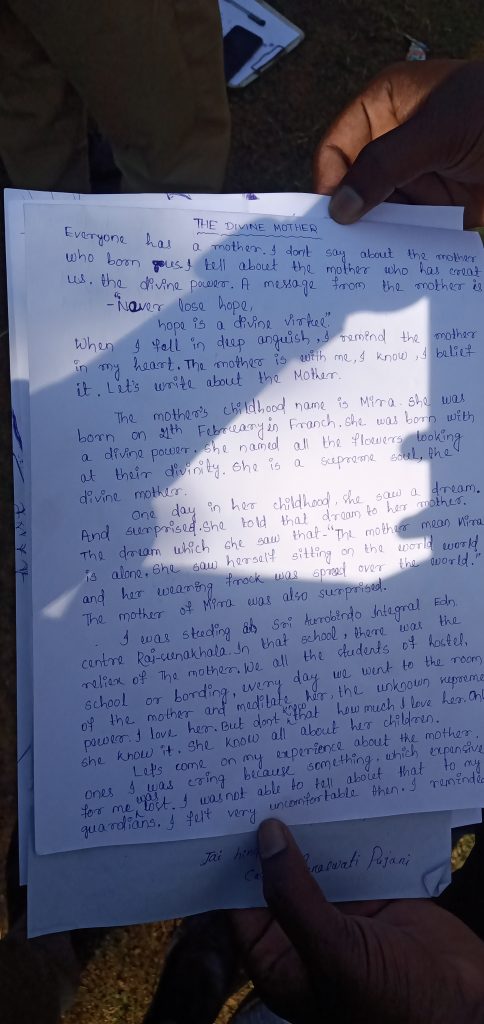 THE DIVINE MOTHER
Everyone has a mother. I dont say about the mother
who born us. I tell about the mother who has creat
us. the divine power. A message from the mother is
-"Never lose hope,
hope is a divine virtue."
When I fall in deep anguish, I remind the mother
in my heart. The mother is with me, I know, I belief
it. Let's write about the Mother.
The mother's childhood name is Mira. She was
born on 21th Februeary in Franch. She was born with
a divine power. She named all the flowers looking
at their divinity. She is a supreme soul, the
divine mother.
One day in her childhood, she saw a dream.
And surprised. She told that dream to her mother.
The dream which she saw that-"The mother mean Mira
is alone. She saw herself sitting on the world world
and her wearing frock was spred over the world."
The mother of Mira was also surprised.
I was studing Sri Aurobindo Integral Edn.
centre Raj-sunakhala. In that school, there was the
reliex of The mother. We all the students of hostel,
school or bording, every day we went to the room
of the mother and meditate her, the unknown supreme
power. I love her. But dont know that how much I love her. Oh!
she know it. She know all about her children.
Let's come on my experience about the mother.
ones I was cring because something. which expensive
for me was lost. I was not able to tell about that to my
guardians. I felt very uncomfortable then. I reminded
Jai
Pujani